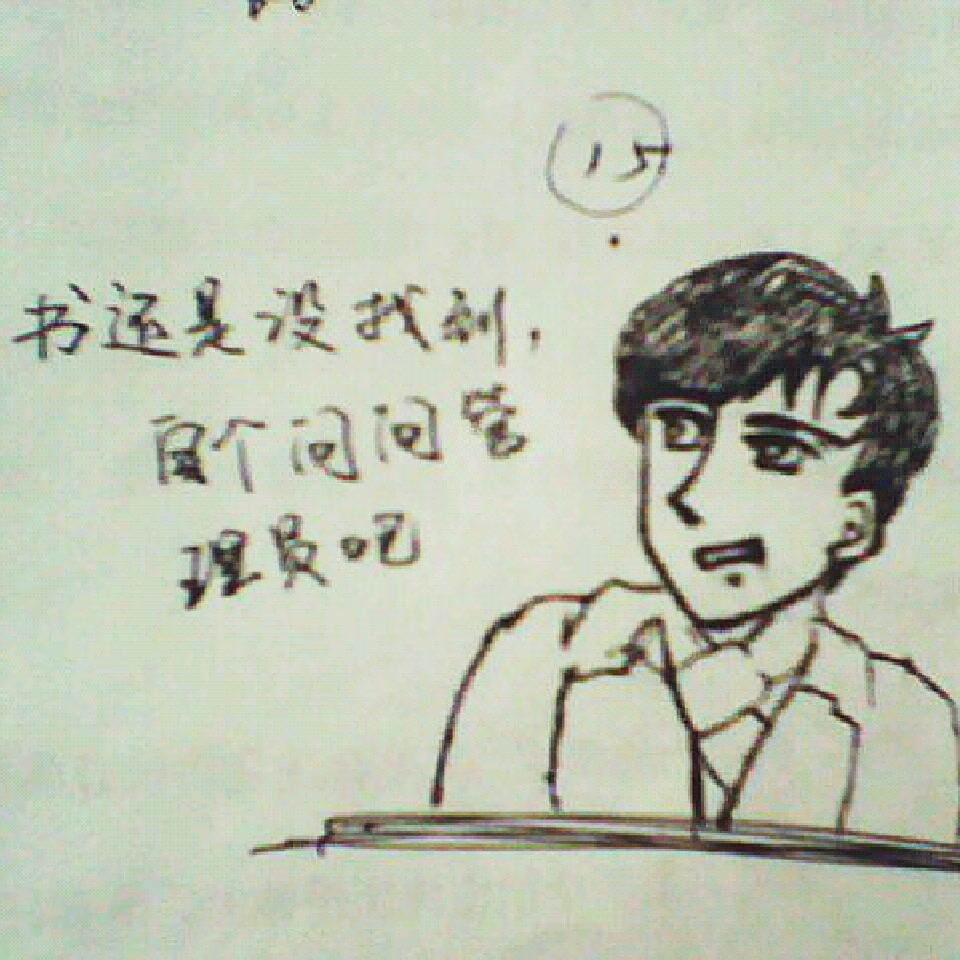 15
书还是没找到，
自个问问管
理员吧